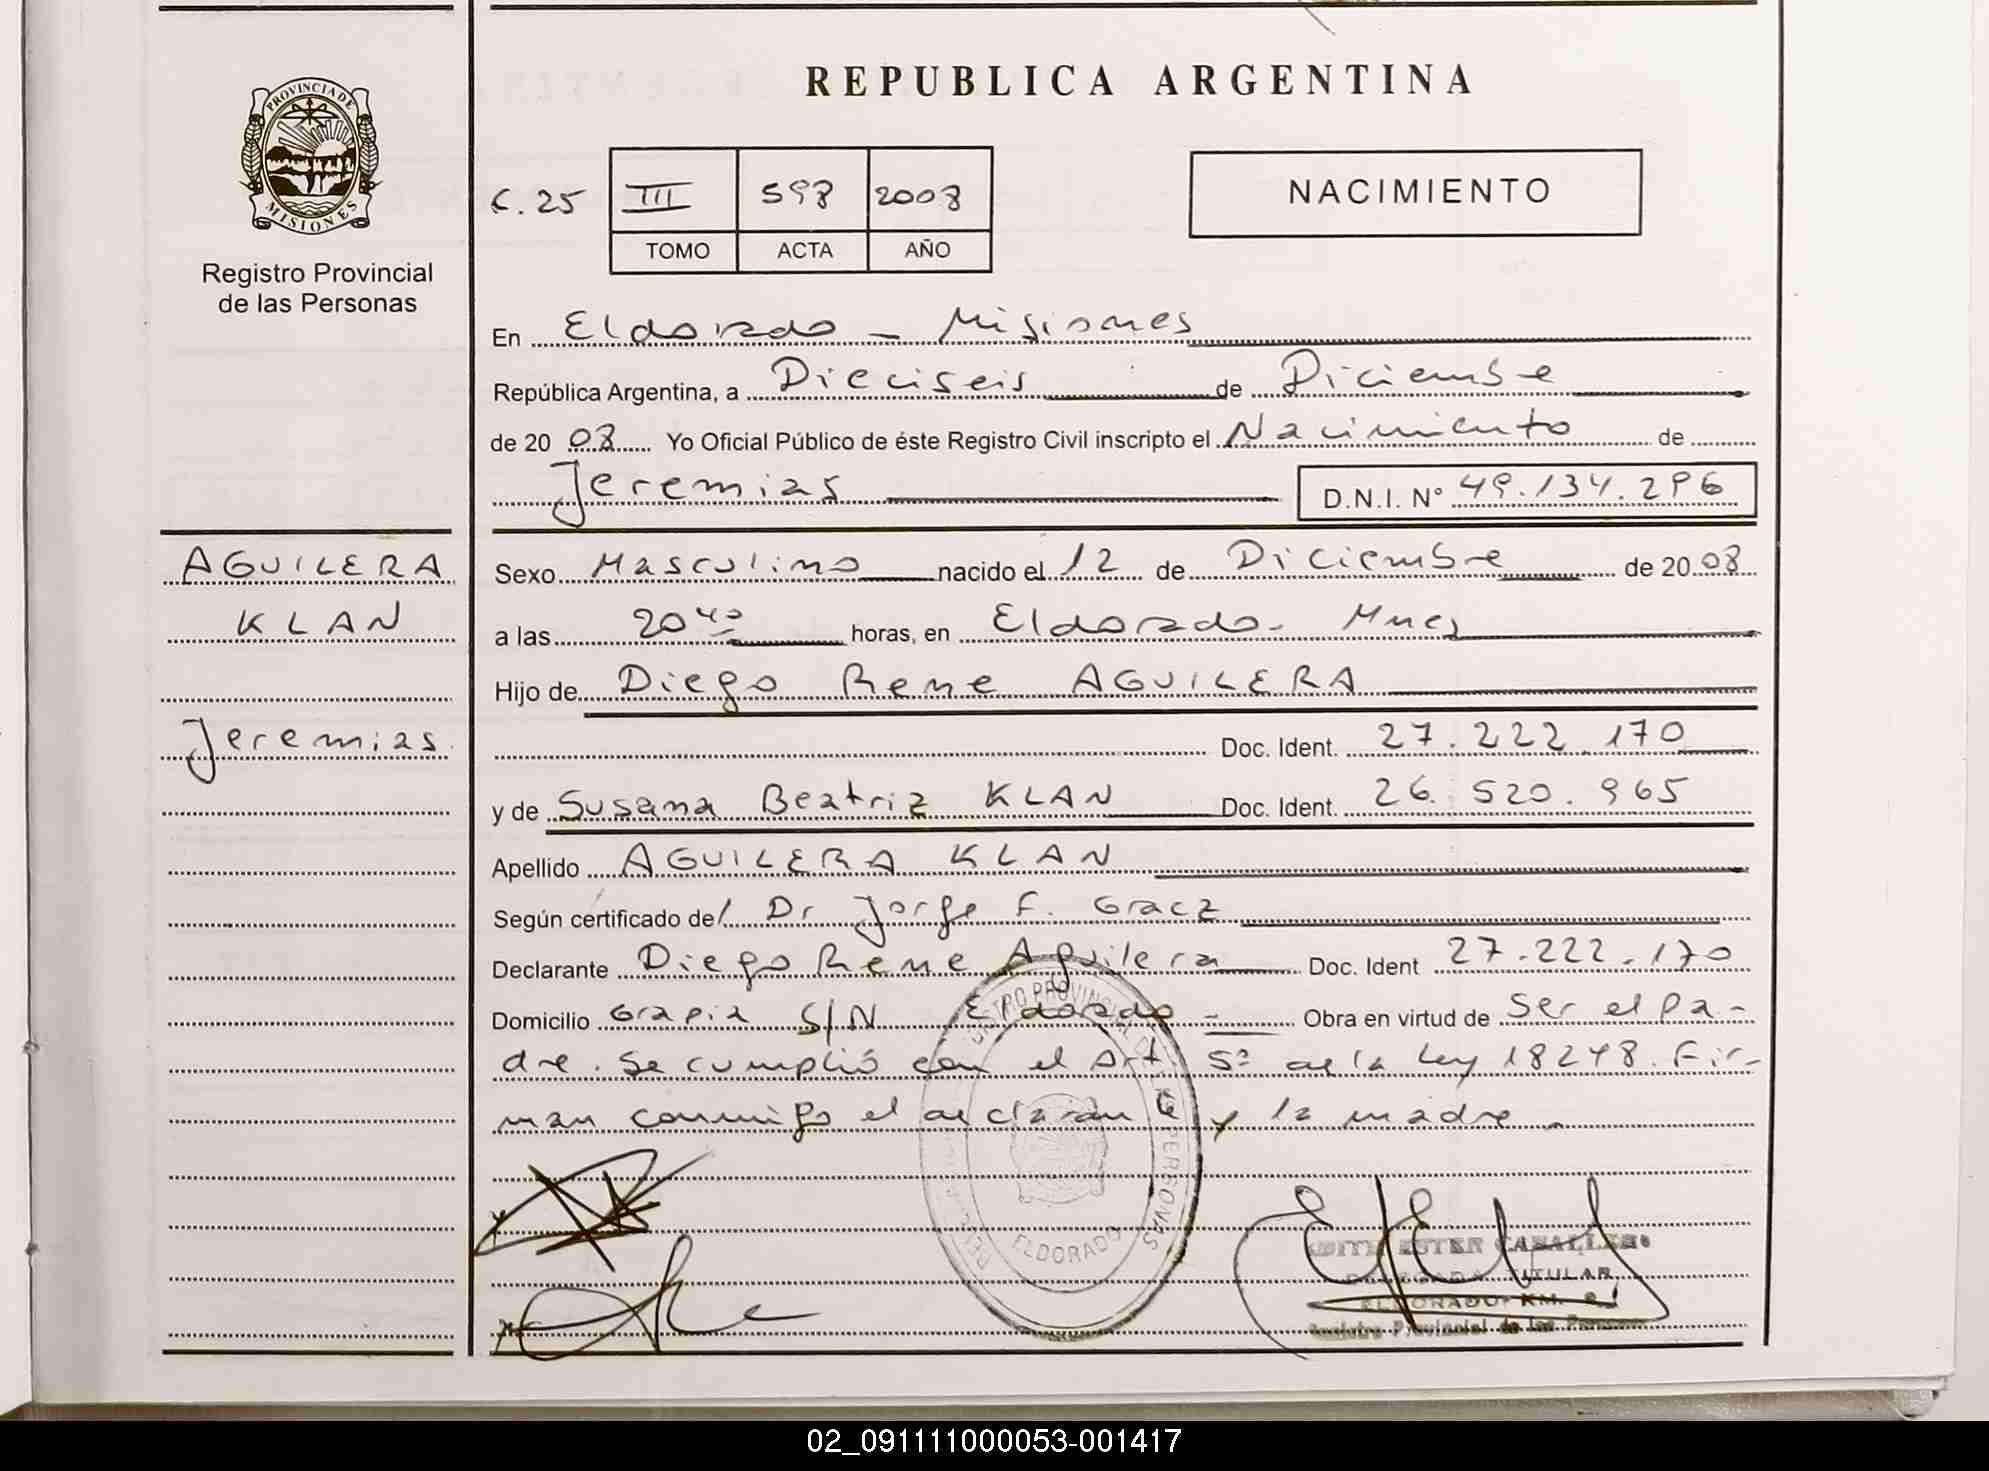 REPUBLICA ARGENTINA
PROVINCIA DE MISIONES
Registro Provincial
de las Personas
C. 25 III 598 2008
TOMO ACTA AÑO
NACIMIENTO
En Eldorado - Misiones
República Argentina, a Dieciseis de Diciembre
de 20 08 Yo Oficial Público de éste Registro Civil inscripto el Nacimiento de
Jeremias D.N.I. N° 49.134.296
AGUILERA
KLAN
Jeremias.
Sexo Masculino nacido el 12 de Diciembre de 20 08
a las 20 40 horas, en Eldorado - Mnes
Hijo de Diego Rene AGUILERA
Doc. Ident. 27.222.170
y de Susana Beatriz KLAN Doc. Ident. 26.520.965
Apellido AGUILERA KLAN
Según certificado del Dr Jorge F. Gracz
Declarante Diego Rene Aguilera Doc. Ident 27.222.170
Domicilio Grapia S/N Eldorado - Obra en virtud de Ser el pa-
dre. Se cumplió con el Art 5º de la Ley 18248. Fir-
man conmigo el declarante y la madre.
ELDORADO
ESTER CABALLERO
DELEGADA TITULAR
ELDORADO KM.
Registro Provincial de las Personas
02_091111000053-001417